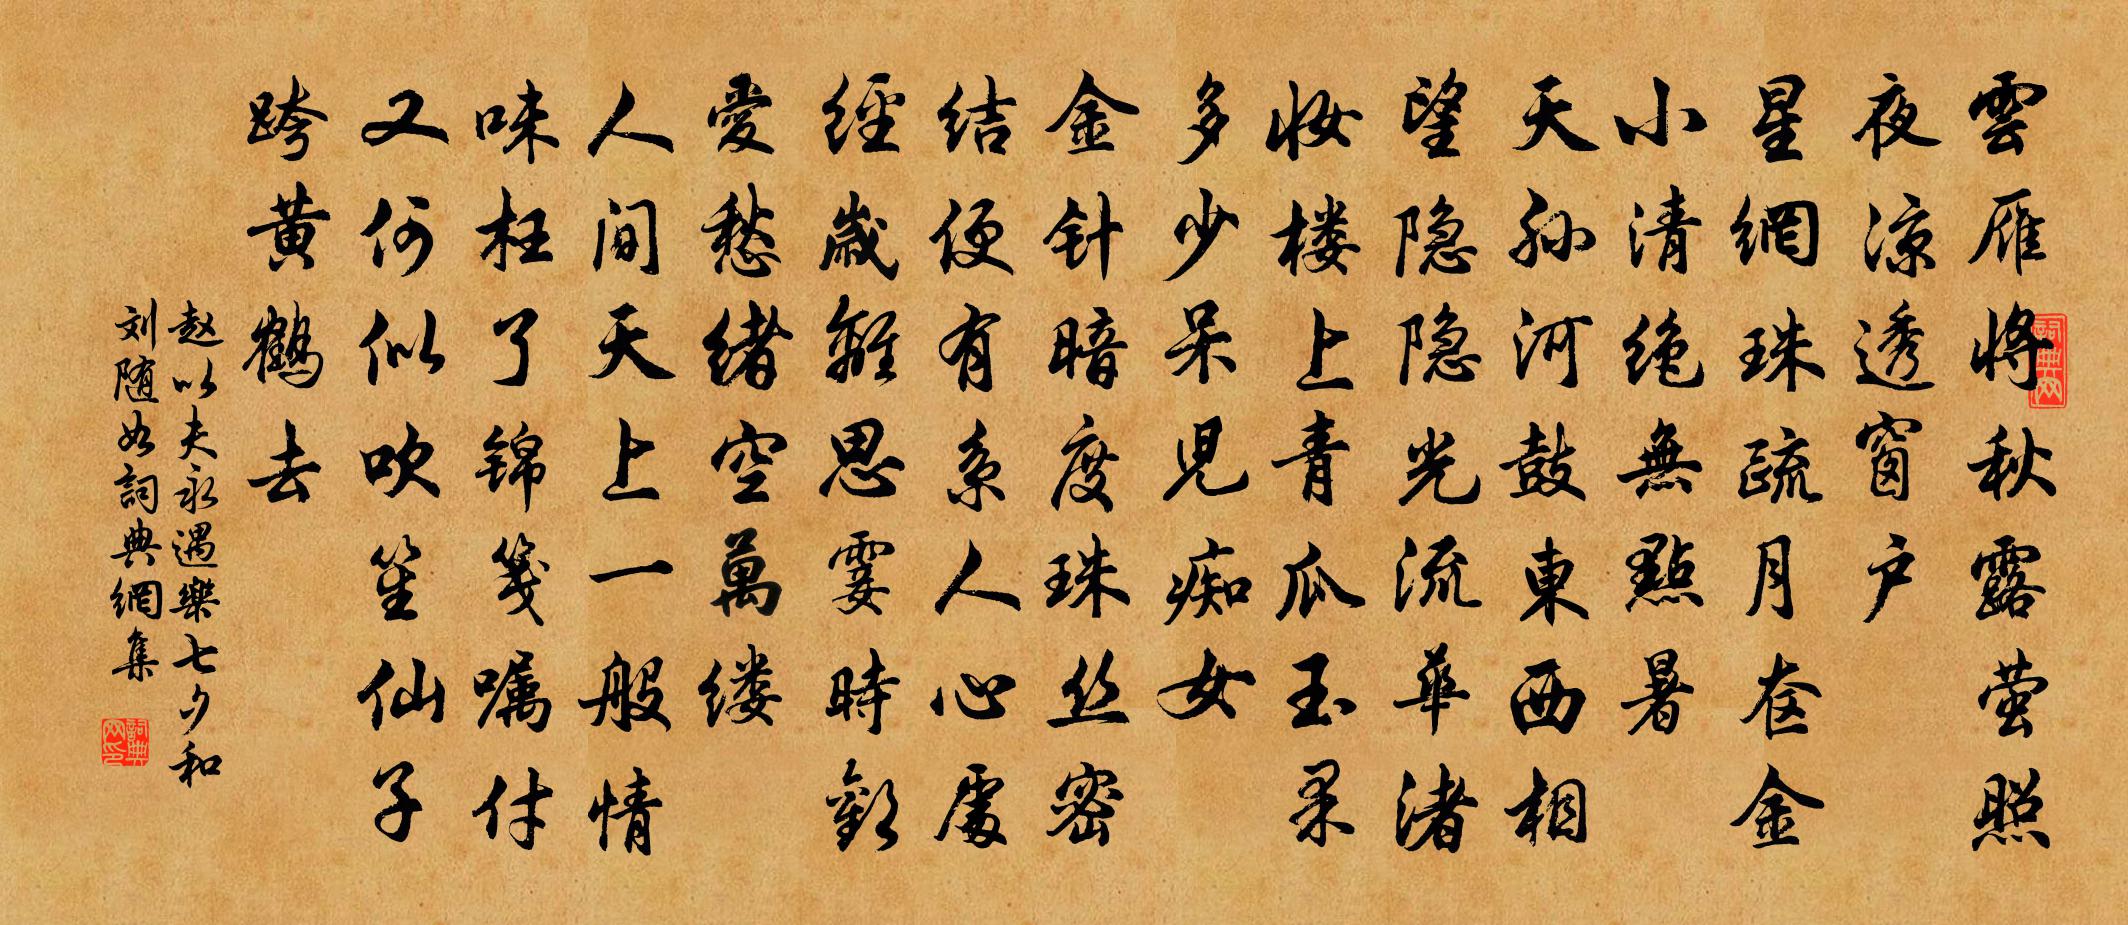 雲雁将秋露萤照
夜涼透窗户
星網珠疏月奁金
小清绝無點暑
天孙河鼓東西相
望隐隐光流華渚
妆楼上青瓜玉果
多少呆児痴女
金针暗度珠丝密
结便有系人心處
經歲離思霎時歡
愛愁绪空萬缕
人间天上一般情
味枉了锦笺嘱付
又何似吹笙仙子
跨黄鹤去
赵以夫永遇樂七夕和
刘随如詞典網集
詞典网
詞典网印